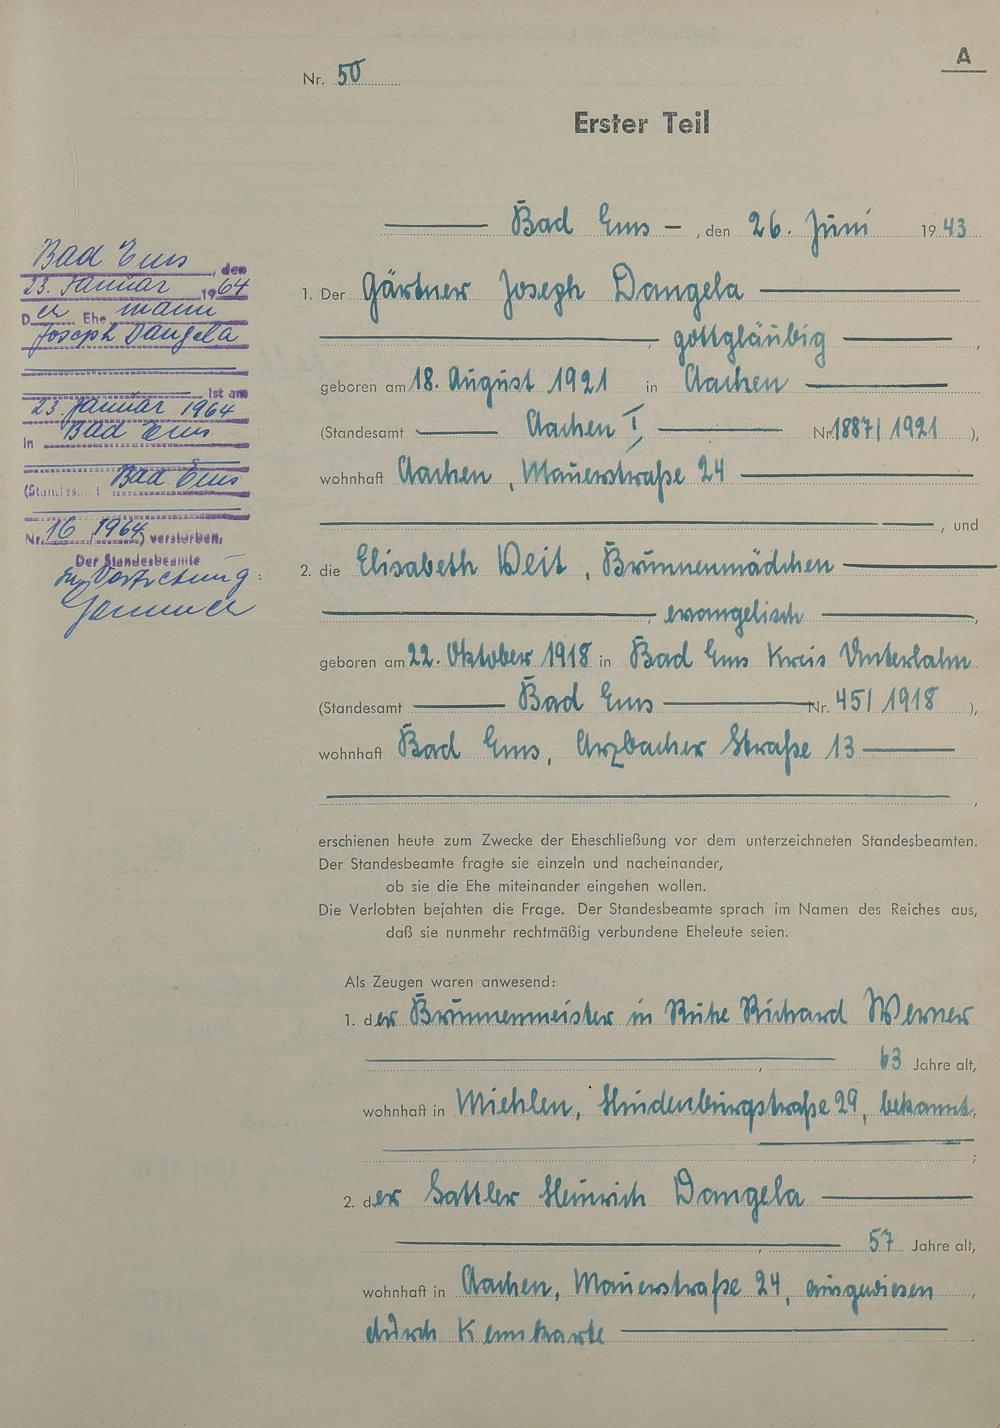 A
Nr. 50
Erster Teil
Bad Ems, den 26. Juni 1943
1. Der Gärtner Joseph Dangela
, gottgläubig ,
geboren am 18. August 1921 in Aachen
(Standesamt Aachen I Nr. 1887/1921 ),
wohnhaft Aachen, Mauerstraße 24
, und
2. die Elisabeth Weit, Brunnenmädchen
, evangelisch ,
geboren am 22. Oktober 1918 in Bad Ems Kreis Unterlahn
(Standesamt Bad Ems Nr. 45/1918 ),
wohnhaft Bad Ems, Arzbacher Straße 13
,
erschienen heute zum Zwecke der Eheschließung vor dem unterzeichneten Standesbeamten.
Der Standesbeamte fragte sie einzeln und nacheinander,
ob sie die Ehe miteinander eingehen wollen.
Die Verlobten bejahten die Frage. Der Standesbeamte sprach im Namen des Reiches aus,
daß sie nunmehr rechtmäßig verbundene Eheleute seien.
Als Zeugen waren anwesend:
1. der Brunnenmeister in Ruhe Richard Werner
, 63 Jahre alt,
wohnhaft in Miehlen, Hindenburgstraße 29, bekannt,
;
2. der Sattler Heinrich Dangela
, 57 Jahre alt,
wohnhaft in Aachen, Mauerstraße 24, ausgewiesen ,
durch Kennkarte .
Bad Ems, den
23. Januar 1964
Der Ehemann
Joseph Dangela
ist am
23. Januar 1964
in Bad Ems
(Standesamt Bad Ems
Nr. 16/1964) verstorben.
Der Standesbeamte